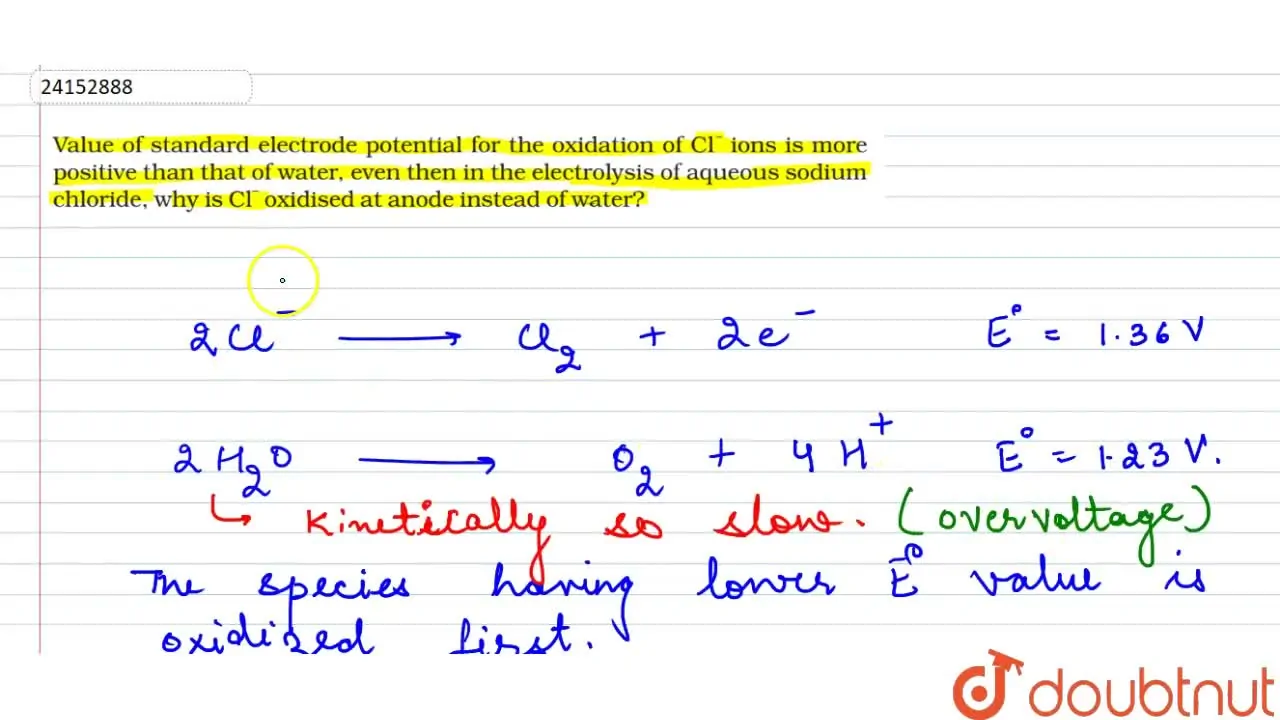 24152888
Value of standard electrode potential for the oxidation of Cl⁻ ions is more
positive than that of water, even then in the electrolysis of aqueous sodium
chloride, why is Cl⁻ oxidised at anode instead of water?
2Cl⁻ ⟶ Cl₂ + 2e⁻ E° = 1.36 V
2H₂O ⟶ O₂ + 4H⁺ E° = 1.23 V.
↳ Kinetically so slow. (overvoltage)
The species having lower E° value is
oxidized first.
doubtnut